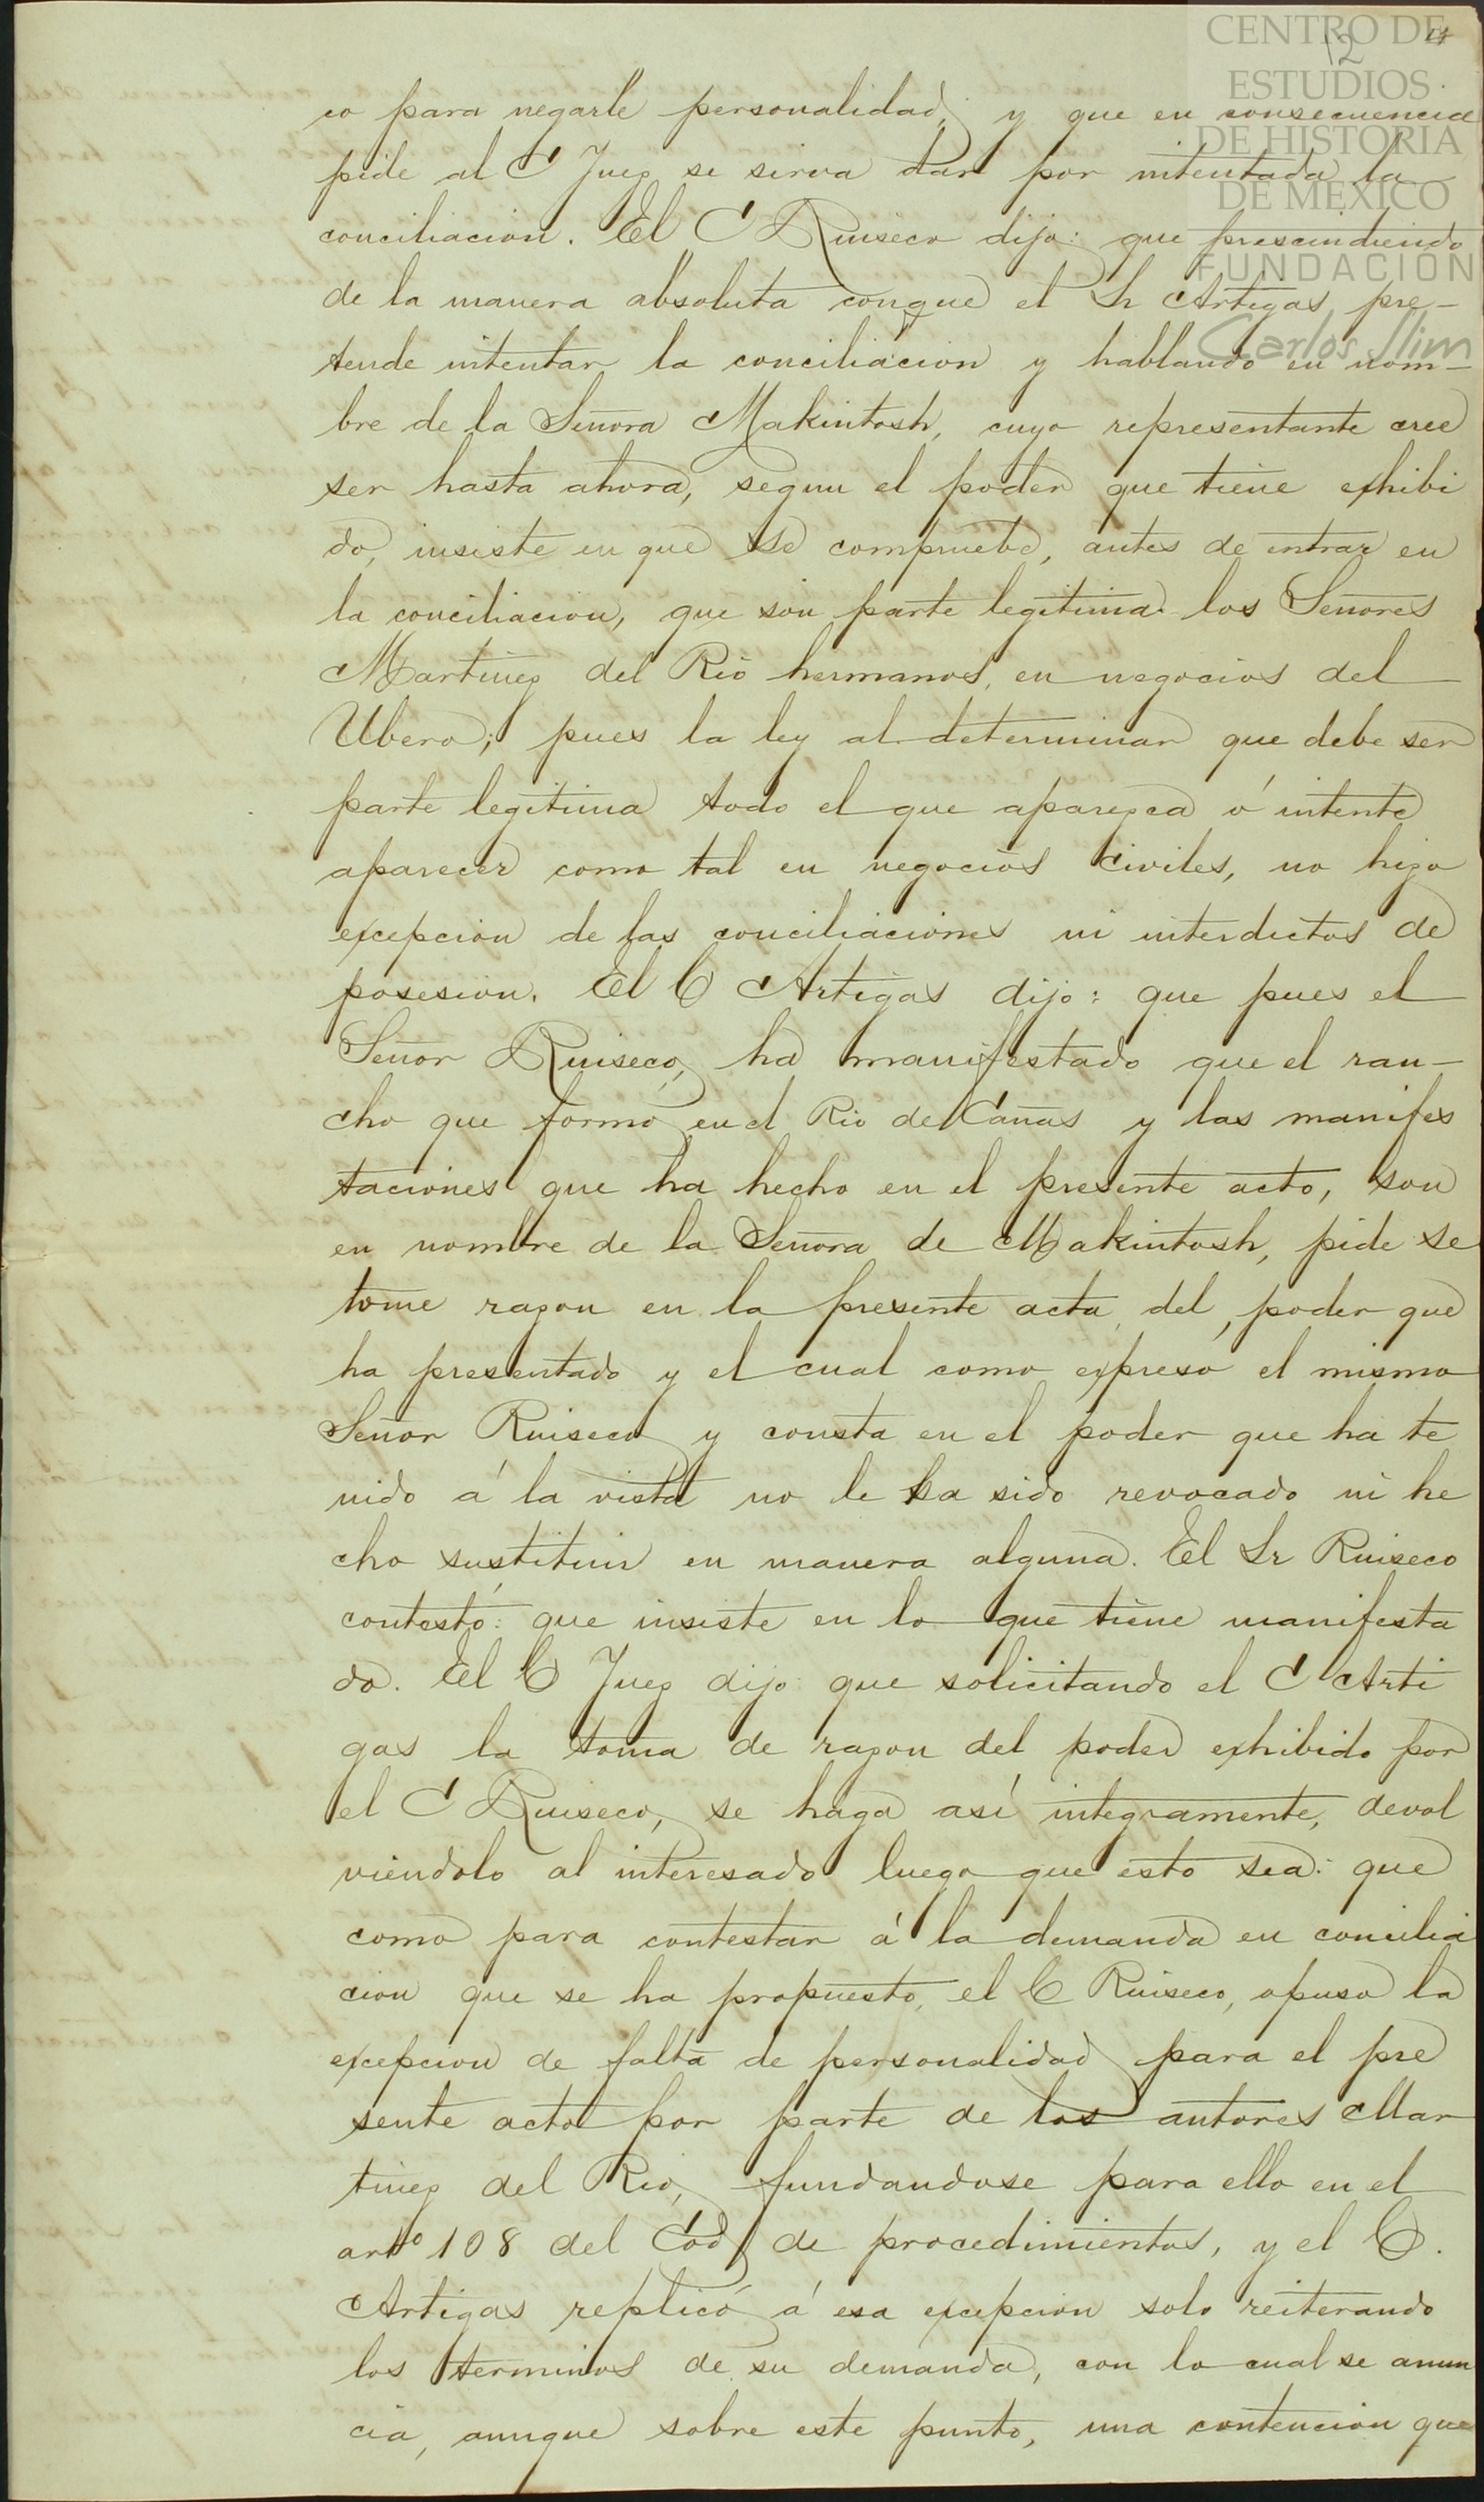 CENTRO DE
ESTUDIOS
DE HISTORIA
DE MÉXICO
FUNDACIÓN
Carlos Slim
12
co para negarle personalidad; y que en consecuencia
pide al C Juez se sirva dar por intentada la
conciliacion. El C Ruiseco dijo: que prescindiendo
de la manera absoluta conque el Sr Artigas pre-
tende intentar la conciliacion y hablando en nom-
bre de la Señora Makintosh, cuyo representante cree
ser hasta ahora, segun el poder que tiene exhibi
do, insiste en que se compruebe, antes de entrar en
la conciliacion, que son parte legitima los Señores
Martinez del Rio hermanos, en negocios del
Ubero; pues la ley al determinar que debe ser
parte legitima todo el que aparezca ó intente
aparecer como tal en negocios civiles, no hizo
excepcion de las conciliaciones ni interdictos de
posesion. El C Artigas dijo: que pues el
Señor Ruiseco, ha manifestado que el ran-
cho que formó en el Rio de Cañas y las manifes
taciones que ha hecho en el presente acto, son
en nombre de la Señora de Makintosh, pide se
tome razon en la presente acta, del, poder que
ha presentado y el cual como expresó el mismo
Señor Ruiseco y consta en el poder que ha te
nido á la vista no le ha sido revocado ni he
cho sustituir en manera alguna. El Sr Ruiseco
contestó: que insiste en lo que tiene manifesta
do. El C Juez dijo: que solicitando el C Arti
gas la toma de razon del poder exhibido por
el C Ruiseco, se haga así integramente, devol
viendolo al interesado luego que esto sea: que
como para contestar á la demanda en concilia
cion que se ha propuesto, el C Ruiseco, opuso la
excepcion de falta de personalidad para el pre
sente acto por parte de los autores Mar
tinez del Rio, fundandose para ello en el
arto 108 del Cod de procedimientos, y el C.
Artigas replicó á esa excepcion solo reiterando
los terminos de su demanda, con lo cual se anun
cia, aunque sobre este punto, una contencion que